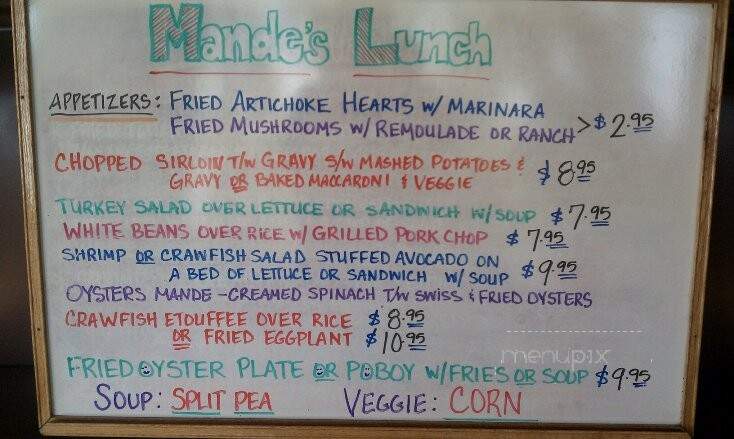 Mande's Lunch
APPETIZERS: FRIED ARTICHOKE HEARTS W/ MARINARA
FRIED MUSHROOMS W/ REMOULADE OR RANCH > $2.95
CHOPPED SIRLOIN T/W GRAVY S/W MASHED POTATOES &
GRAVY OR BAKED MACCARONI & VEGGIE $8.95
TURKEY SALAD OVER LETTUCE OR SANDWICH W/ SOUP $7.95
WHITE BEANS OVER RICE W/ GRILLED PORK CHOP $7.95
SHRIMP OR CRAWFISH SALAD STUFFED AVOCADO ON
A BED OF LETTUCE OR SANDWICH W/ SOUP $9.95
OYSTERS MANDE - CREAMED SPINACH T/W SWISS & FRIED OYSTERS
CRAWFISH ETOUFFEE OVER RICE $8.95
OR FRIED EGGPLANT $10.95
menupix
FRIED OYSTER PLATE OR POBOY W/FRIES OR SOUP $9.95
SOUP: SPLIT PEA VEGGIE: CORN